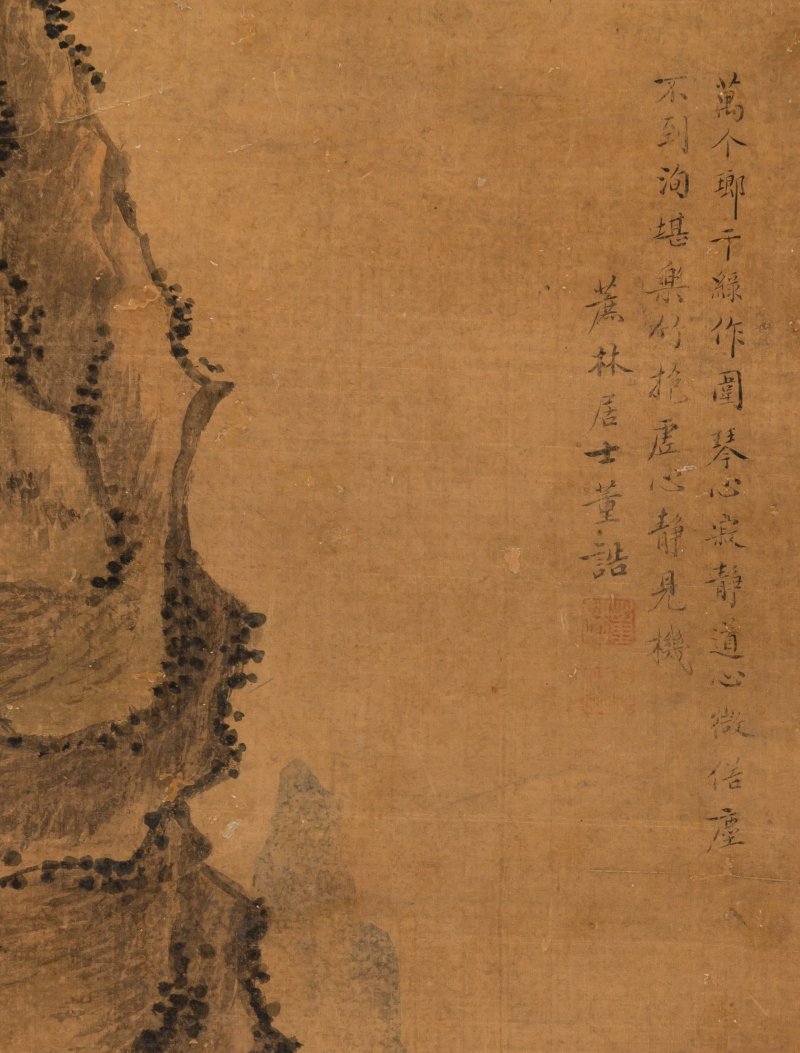 萬个瑯玕綠作圍琴心寂靜道心微俗塵
不到洵堪樂竹抱虛心靜見機
蔗林居士董誥